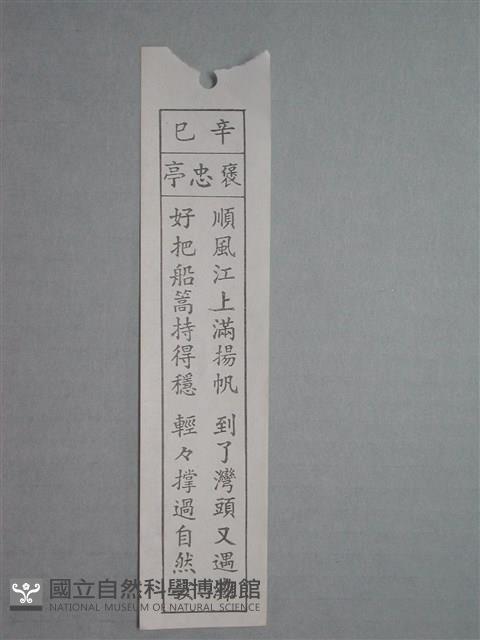 辛巳
褒忠亭
順風江上滿揚帆 到了灣頭又遇
好把船篙持得穩 輕々撑過自然
國立自然科學博物館
NATIONAL MUSEUM OF NATURAL SCIENCE